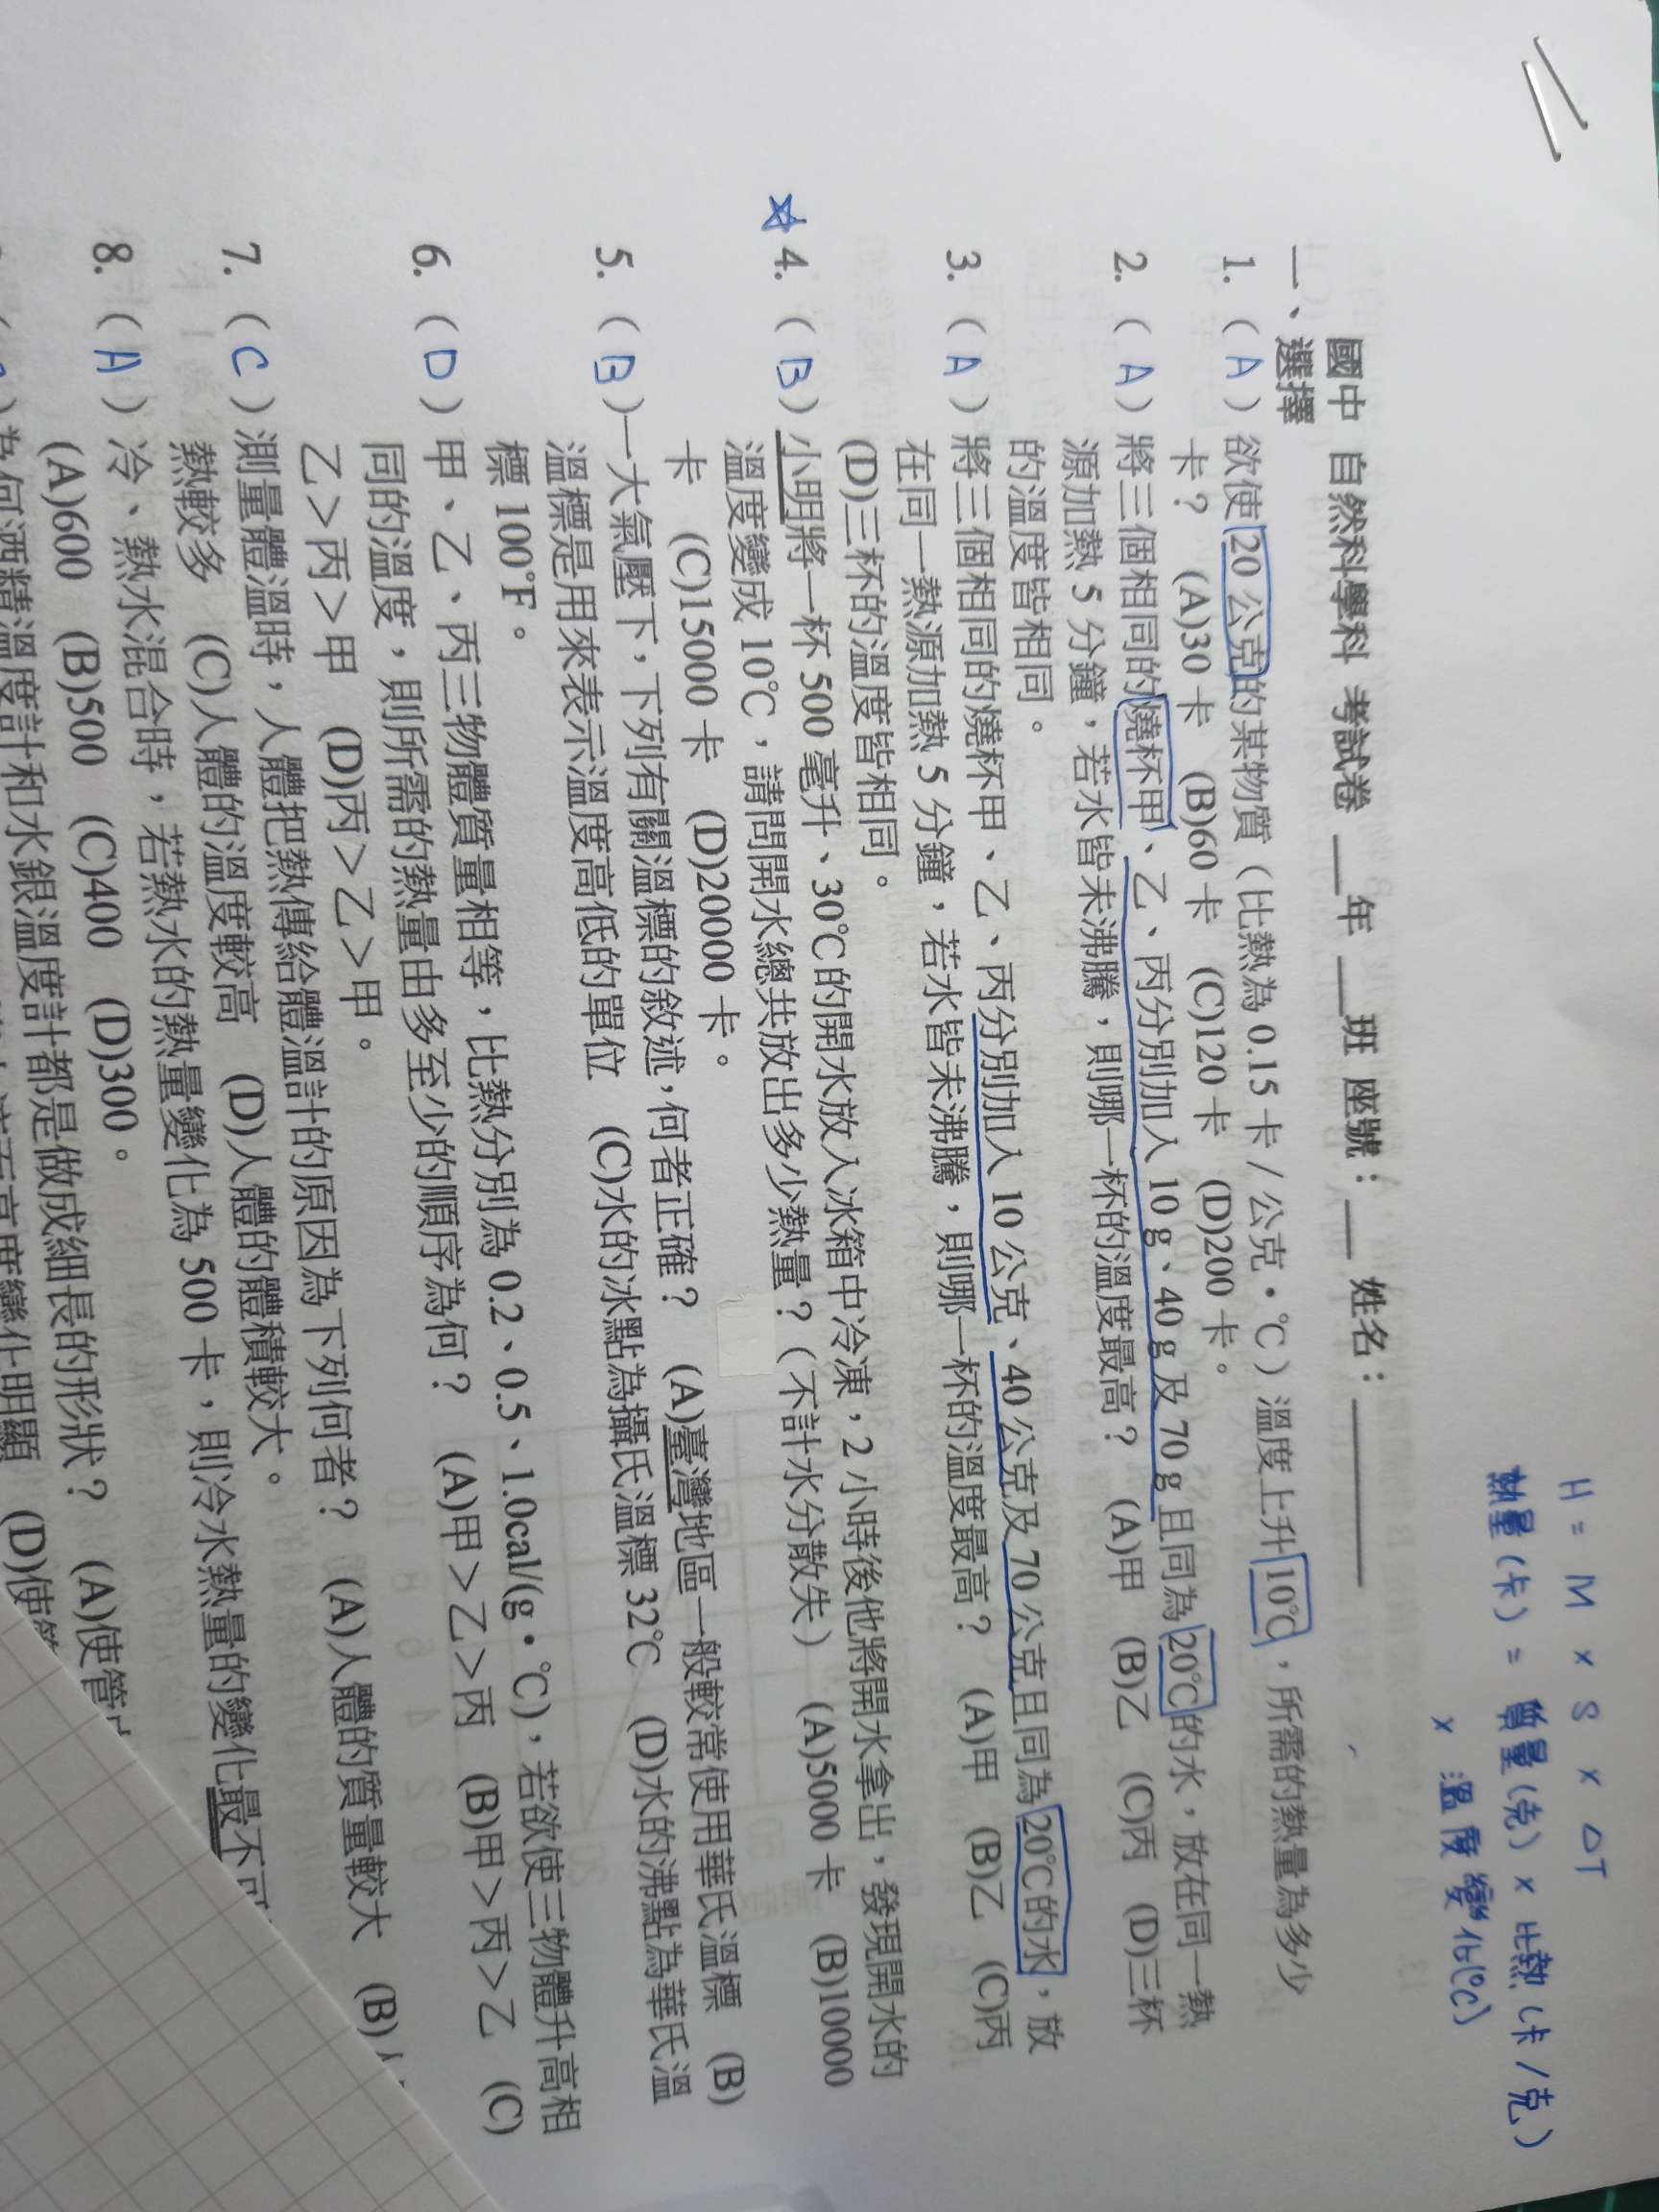 H = M × S × △T
熱量(卡) = 質量(克) × 比熱(卡/克)
× 溫度變化(℃)
國中 自然科學科 考試卷 ___年 ___班 座號：___ 姓名：________
一、選擇
1. ( A ) 欲使 20 公克的某物質（比熱為 0.15 卡／公克·℃）溫度上升 10℃，所需的熱量為多少
卡？ (A)30 卡 (B)60 卡 (C)120 卡 (D)200 卡。
2. ( A ) 將三個相同的燒杯甲、乙、丙分別加入 10 g、40 g 及 70 g 且同為 20℃的水，放在同一熱
源加熱 5 分鐘，若水皆未沸騰，則哪一杯的溫度最高？ (A)甲 (B)乙 (C)丙 (D)三杯
的溫度皆相同。
3. ( A ) 將三個相同的燒杯甲、乙、丙分別加入 10 公克、40 公克及 70 公克且同為 20℃的水，放
在同一熱源加熱 5 分鐘，若水皆未沸騰，則哪一杯的溫度最高？ (A)甲 (B)乙 (C)丙
(D)三杯的溫度皆相同。
☆ 4. ( B ) 小明將一杯 500 毫升、30℃的開水放入冰箱中冷凍，2 小時後他將開水拿出，發現開水的
溫度變成 10℃，請問開水總共放出多少熱量？（不計水分散失） (A)5000 卡 (B)10000
卡 (C)15000 卡 (D)20000 卡。
5. ( B ) 一大氣壓下，下列有關溫標的敘述，何者正確？ (A)臺灣地區一般較常使用華氏溫標 (B)
溫標是用來表示溫度高低的單位 (C)水的冰點為攝氏溫標 32℃ (D)水的沸點為華氏溫
標 100℉。
6. ( D ) 甲、乙、丙三物體質量相等，比熱分別為 0.2、0.5、1.0cal/(g·℃)，若欲使三物體升高相
同的溫度，則所需的熱量由多至少的順序為何？ (A)甲＞乙＞丙 (B)甲＞丙＞乙 (C)
乙＞丙＞甲 (D)丙＞乙＞甲。
7. ( C ) 測量體溫時，人體把熱傳給體溫計的原因為下列何者？ (A)人體的質量較大 (B)
熱較多 (C)人體的溫度較高 (D)人體的體積較大。
8. ( A ) 冷、熱水混合時，若熱水的熱量變化為 500 卡，則冷水熱量的變化最不可
(A)600 (B)500 (C)400 (D)300。
為何酒精溫度計和水銀溫度計都是做成細長的形狀？ (A)使管
高度變化明顯 (D)使